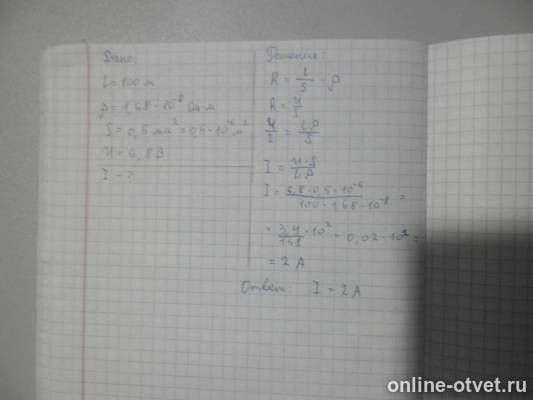 Дано:
l = 100 м
ρ = 1,68 · 10⁻⁸ Ом·м
S = 0,5 мм² = 0,5 · 10⁻⁶ м²
U = 6,8 В
I - ?
Решение:
R = l/S · ρ
R = U/I
U/I = lρ/S
I = U·S/lρ
I = 6,8 · 0,5 · 10⁻⁶/100 · 1,68 · 10⁻⁸ =
= 3,4/168 · 10² = 0,02 · 10² =
= 2 А
Ответ: I = 2 А
online-otvet.ru